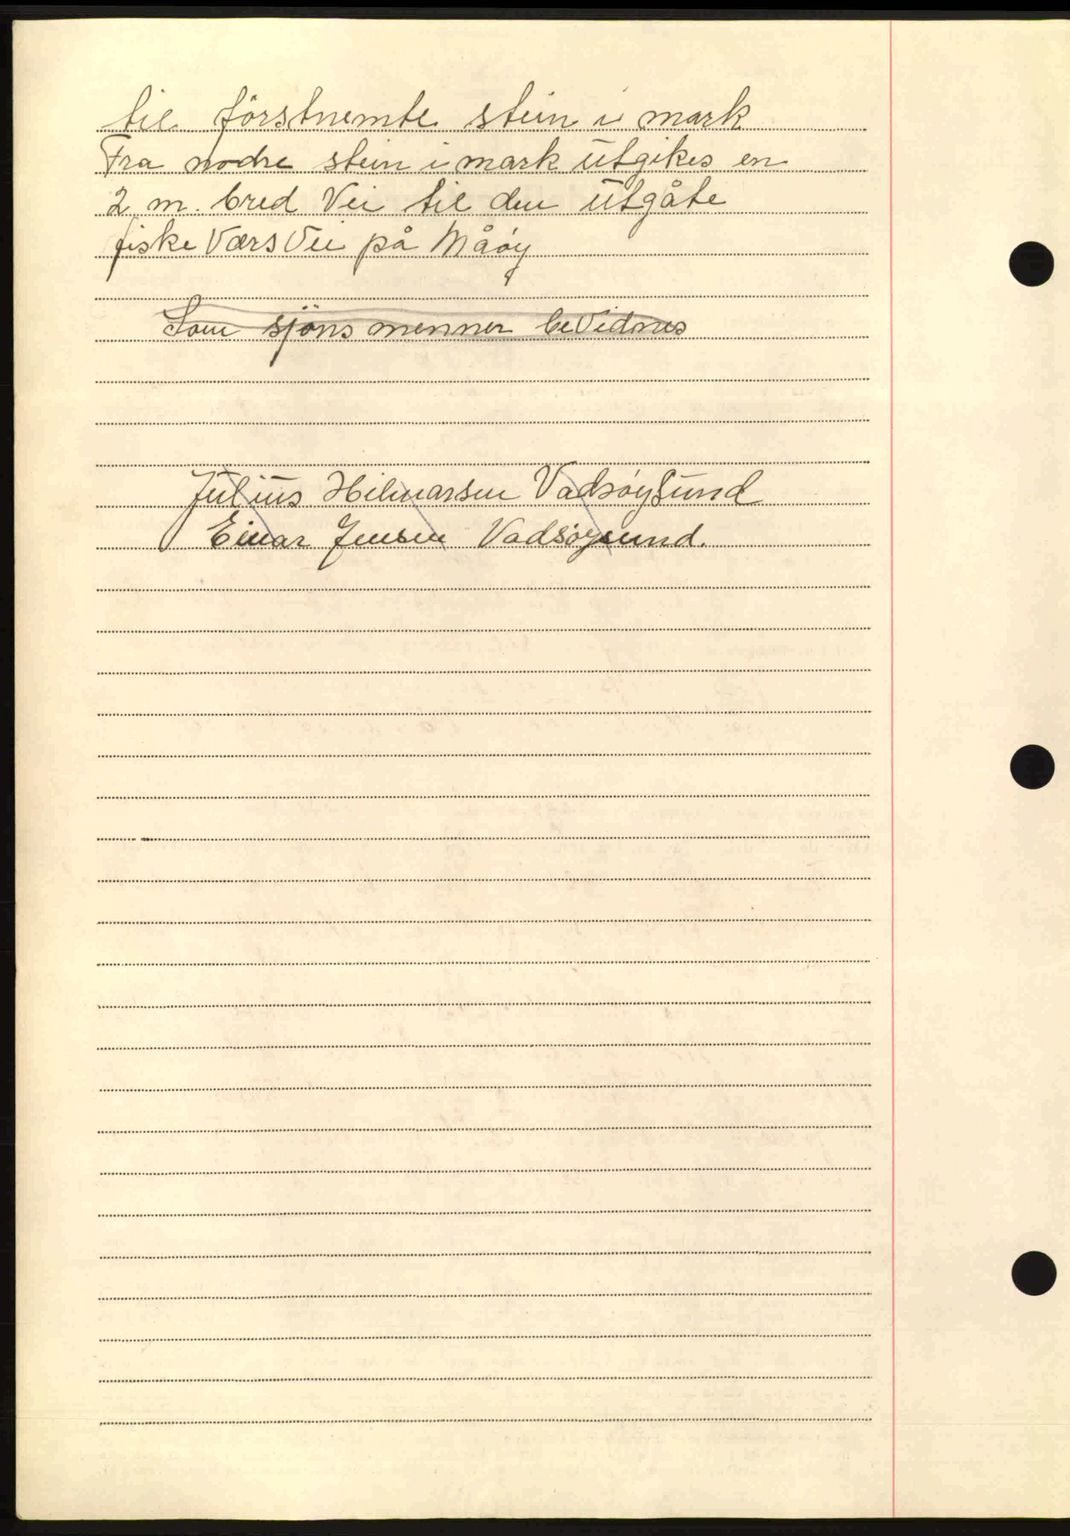 til förstnemte stein i mark
Fra nodre stein i mark utgikes en
2 m. bred Vei til den utgåte
fiske Værs Vei på Måøy
Som sjöns menner beVidnes
Julius Hilmarsen Vadsøysund
Einar Jensen Vadsøysund.